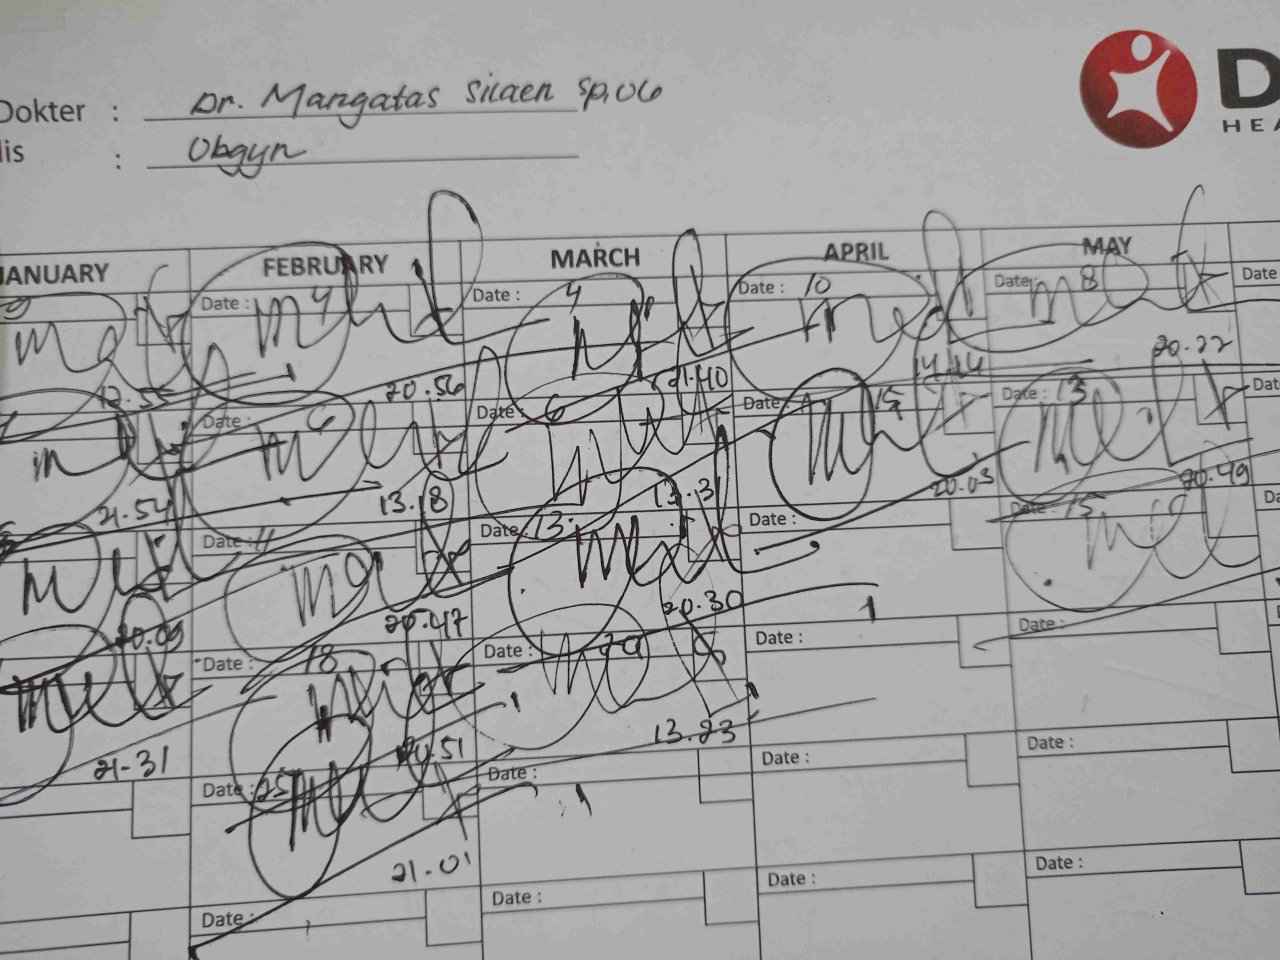 Dokter : Dr. Mangatas Silaen Sp.OG
lis : Obgyn
D
HEA
JANUARY FEBRUARY MARCH APRIL MAY
Date : 4 Date : 4 Date : 10 Date : 8 Date
12.55 20.56 21.40 14.14 20.22
Date : 6 Date : 6 Date : 15 Date : 13 Dat
21.54 13.18 13.31 20.03 20.49
Date : 11 Date : 13 Date : Date : 15 Da
20.09 20.47 20.30
Date : 18 Date : 29 Date : Date :
21-31 20.51 13.23
Date : 25 Date : Date : Date :
21.01
Date : Date : Date : Date :